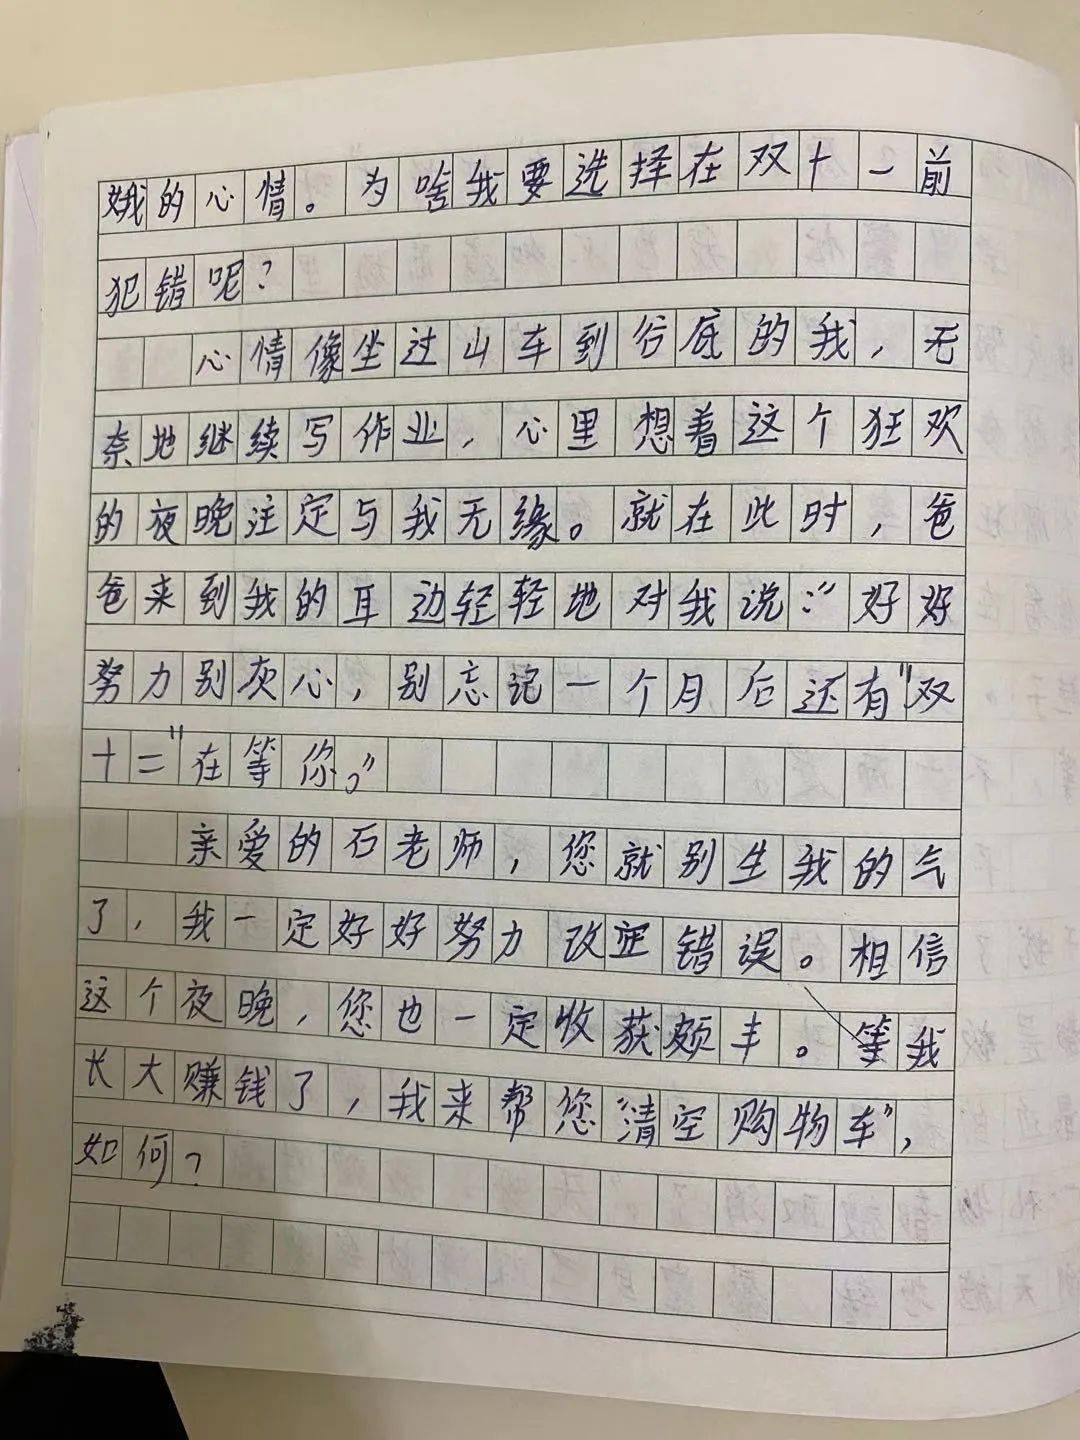 娥的心情。为啥我要选择在双十一前
犯错呢？
心情像坐过山车到谷底的我，无
奈地继续写作业，心里想着这个狂欢
的夜晚注定与我无缘。就在此时，爸
爸来到我的耳边轻轻地对我说：“好好
努力别灰心，别忘记一个月后还有“双
十二”在等你。”
亲爱的石老师，您就别生我的气
了，我一定好好努力改正错误。相信
这个夜晚，您也一定收获颇丰。等我
长大赚钱了，我来帮您“清空购物车”，
如何？